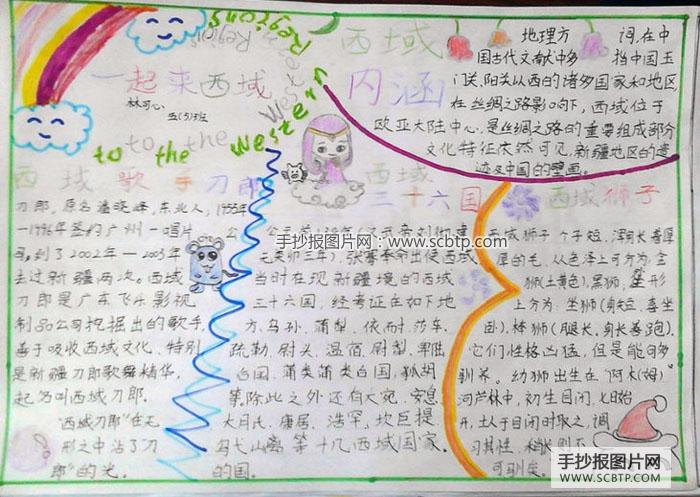 一起来西域
林可心
五(5)班
to the Western Regions
西域
内涵
地理方 词,在中
国古代文献中多 指中国玉
门关、阳关以西的诸多国家和地区,
在丝绸之路影响下,西域位于
欧亚大陆中心,是丝绸之路的重要组成部分
文化特征依然可见,新疆地区的遗
迹及中国的壁画。
西域歌手刀郎
刀郎,原名
东北人,
一1996年签约广州一唱片
司,到了2002年一2003年
去过新疆两次。西域
刀郎是广东飞乐影视
制品公司挖掘出的歌手,
善于吸收西域文化、特别
是新疆刀郎歌舞精华,
起名叫西域刀郎。
"西域刀郎"在无
形之中沾了刀
郎"的光。
西域
三十六国
手抄报图片网:www.scbtp.com
元癸卯三年),张骞奉命出使西域
当时在现新疆境的西域
三十六国,经考证在如下地
方,乌孙、蒲犁、依耐、莎车、
疏勒、尉头、温宿、尉犁、卑陆
台国、蒲类蒲类台国、狐胡
等,除此之外还有大宛、安息
大月氏、康居、浩罕、坎巨提
乌弋山离等十几西域国家,
的国。
西域狮子
西域狮子个子短,浑身长着厚
厚的毛,从色泽上可分为,金
狮(土黄色),黑狮,
形
上分为:坐狮(身短,喜坐
卧),棒狮(腿长,身长善跑).
它们性格凶猛,但是能够
驯养。幼狮出生在"阿木(姆)"
河芦林中,初生目闭,七日始
开,土人于目闭时取之,调
习其性,稍长则不
可驯矣。
手抄报图片网
WWW.SCBTP.COM